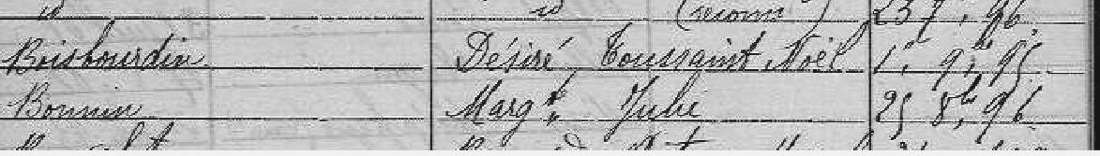 id id (reconn) 23 7, 96.
Boisbourdin Désiré Toussaint Noël 1er 9bre 95
Bonnin Margte Julie 25 8bre 96